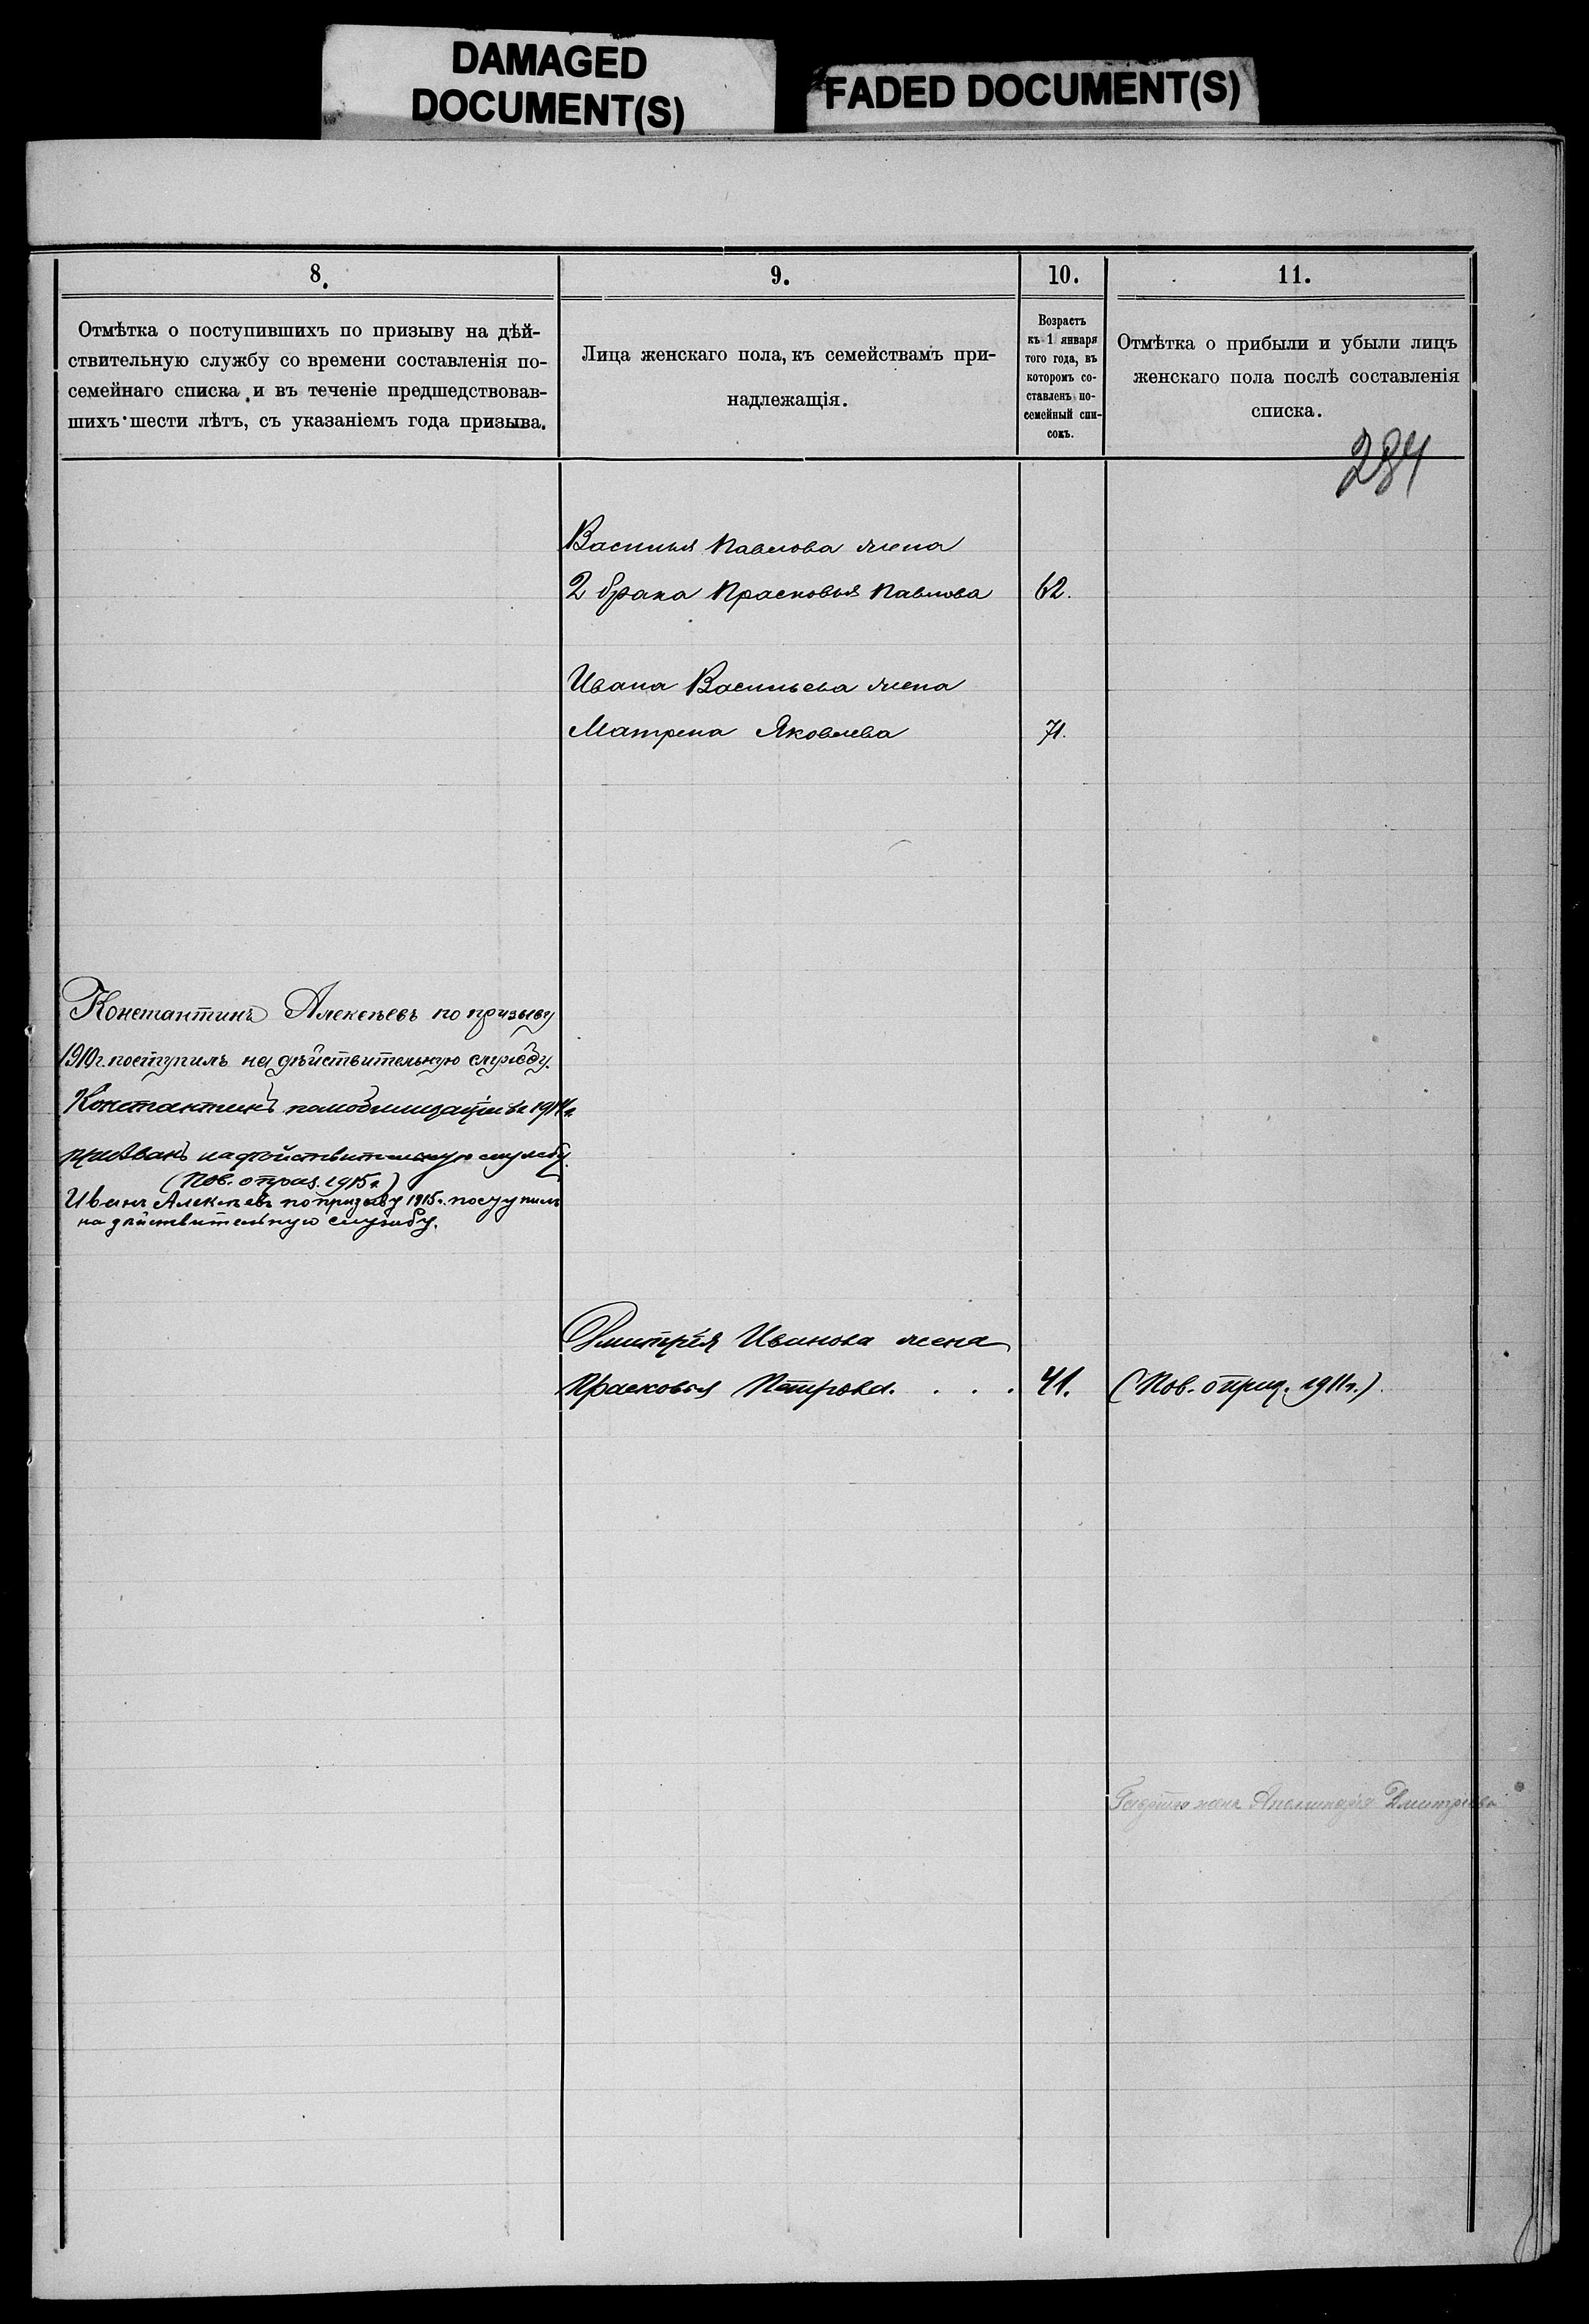 DAMAGED
DOCUMENT(S)
FADED DOCUMENT(S)
8.
Отмѣтка о поступившихъ по призыву на дѣй-
ствительную службу со времени составленія по-
семейнаго списка и въ теченіе предшедствовав-
шихъ шести лѣтъ, съ указаніемъ года призыва.
9.
Лица женскаго пола, къ семействамъ при-
надлежащія.
10.
Возрастъ
къ 1 января
того года, въ
которомъ со-
ставленъ по-
семейный спи-
сокъ.
11.
Отмѣтка о прибыли и убыли лицъ
женскаго пола послѣ составленія
списка.
284
Василья Павлова жена
2 брака Прасковья Павлова 62.
Ивана Васильева жена
Матрена Яковлева 71.
Константинъ Алексѣевъ по призыву
1910 г. поступилъ на дѣйствительную службу.
Константинъ по мобилизаціи въ 1914 г.
призванъ на дѣйствительную службу.
(Пов. о приз. 1915 г.)
Иванъ Алексѣевъ по призыву 1915 г. поступилъ
на дѣйствительную службу.
Дмитрія Иванова жена
Прасковья Петрова. . . . 41. (Пов. о приз. 1911 г.)
жена Дмитріева